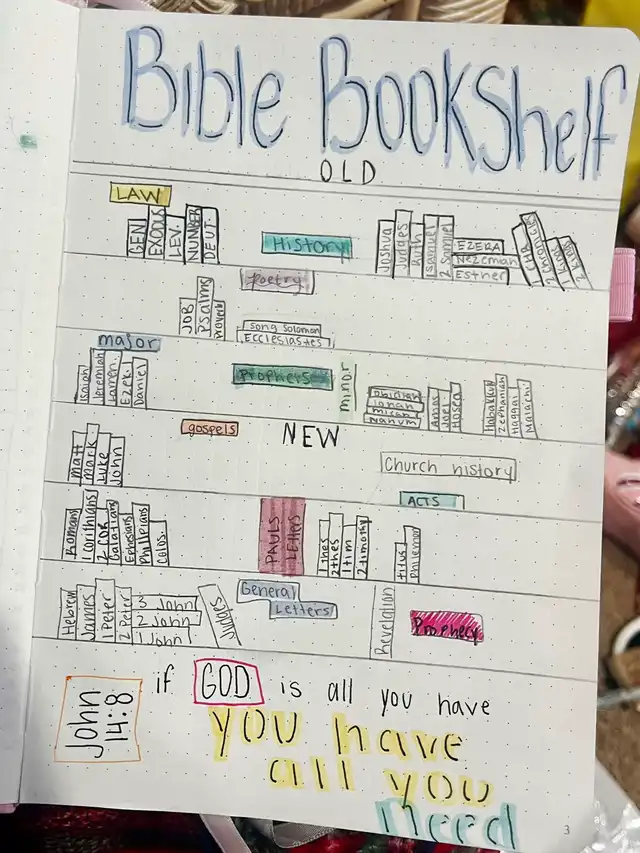 Bible Bookshelf
OLD
LAW
GEN
EXODUS
LEV.
NUMBER
DEUT
History
Joshua
Judges
Ruth
1 samuel
2 Samuel
EZERA
Nezeman
Esther
CHR
2 chronicles
1 Kings
2 Kings
Poetry
JOB
Psalms
Proverb
Song Solomon
ECCLESIASTES
major
Isaiah
Jeremiah
Lamen.
Ezeki
Daniel
Prophers
minor
Obidiah
Jonah
micah
Nahum
Amos
Joel
Hosea
Habakkuk
Zephaniah
Haggai
Malachi
gospels
NEW
Matt
Mark
Luke
John
Church history
ACTS
Romans
1 Corinthians
2 COR
Galatians
Ephesians
Philippians
Colos.
PAULS
LETTERS
1 thes
2 thes
1 tim
2 timothy
titus
Philemon
Hebrew
James
1 Peter
2 Peter
3 John
2 John
1 John
Judges
General
Letters
Revelation
Prophecy
John
14:8
if GOD is all you have
you have
all you
need
3